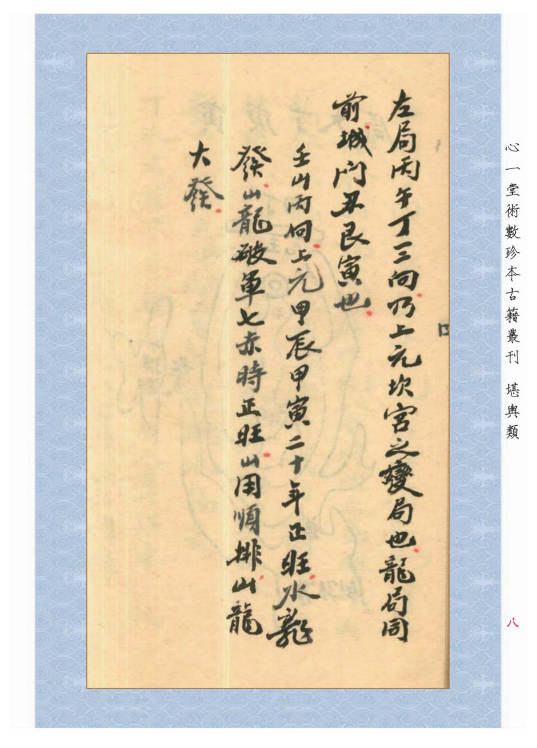 左局丙午丁三向乃上元坎宮之變局也龍局同
前城门丑艮寅也
壬山丙向上元甲辰甲寅二十年正旺水龍
發山龍破軍七赤時正旺山用順排山龍
大發
心一堂術數珍本古籍叢刊 堪輿類
八